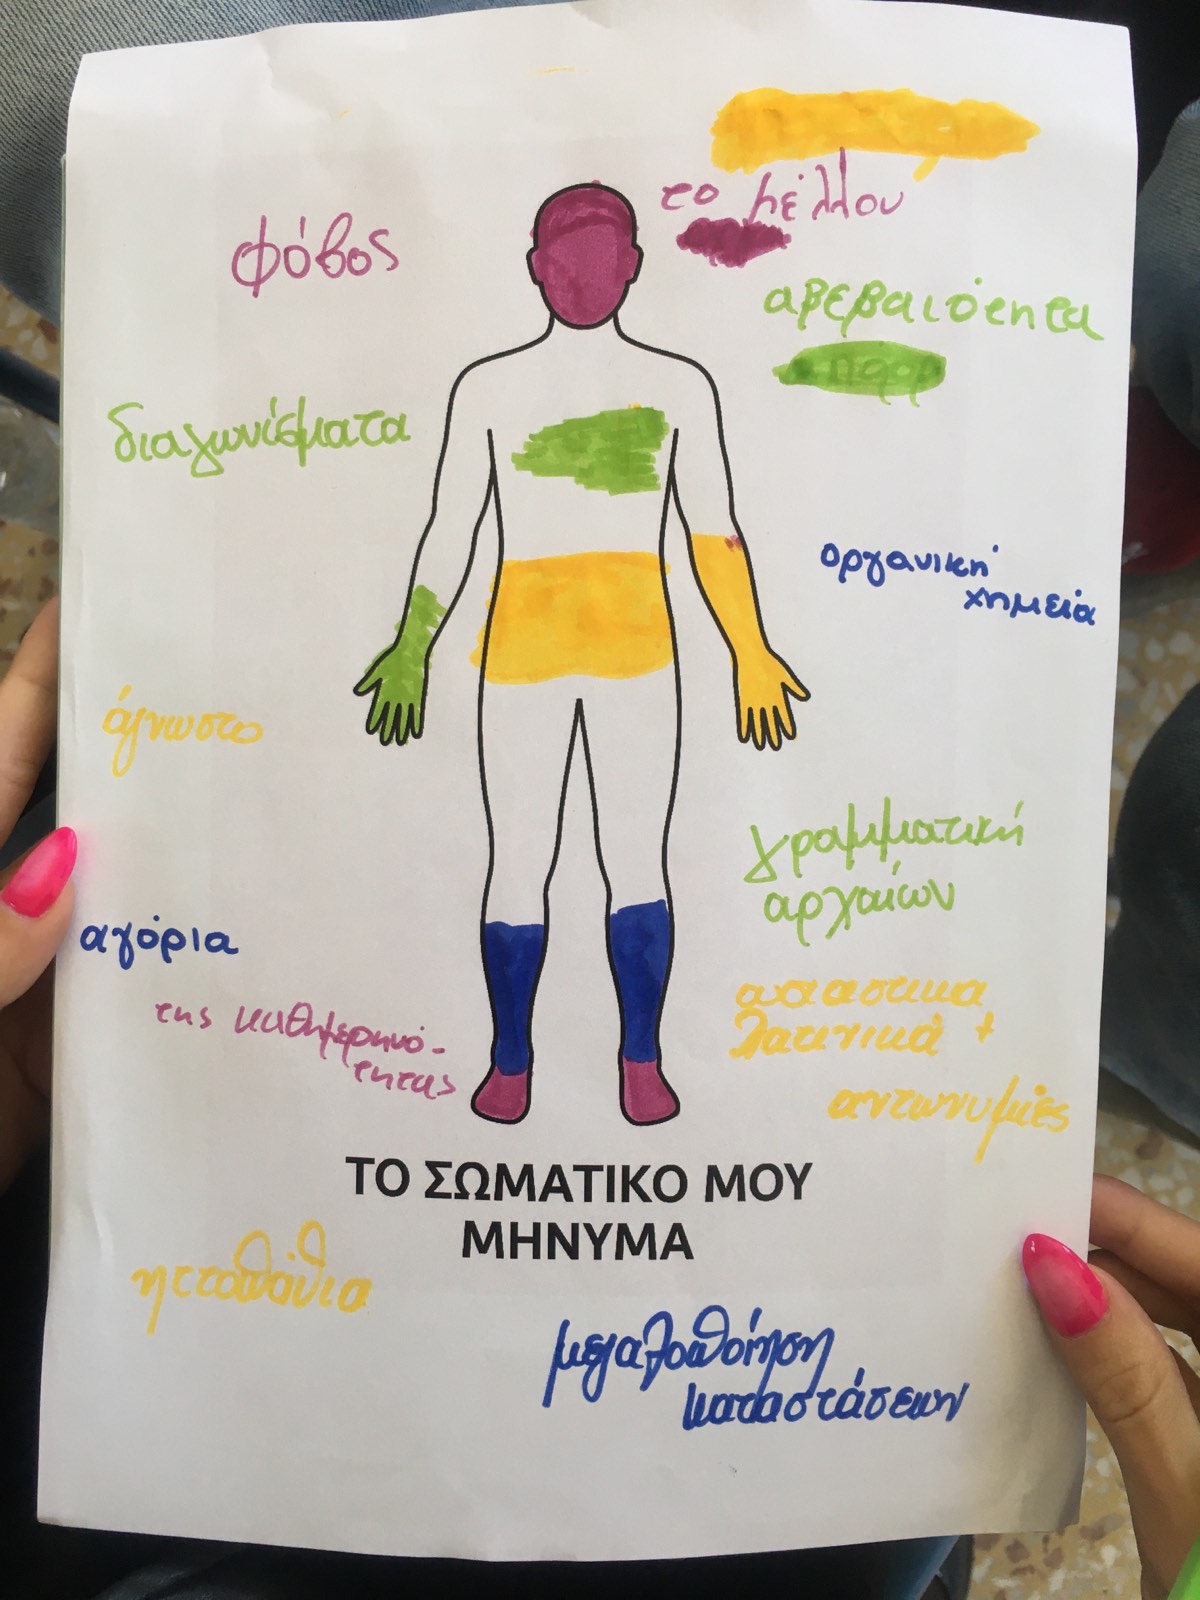 φόβος
το μέλλον
αβεβαιότητα
διαγωνίσματα
οργανική
χημεία
άγνωστο
γραμματική
αρχαίων
αγόρια
της καθημερινό-
τητας
λατινικά +
αντωνυμίες
ΤΟ ΣΩΜΑΤΙΚΟ ΜΟΥ
ΜΗΝΥΜΑ
ηττοπάθια
μεγαλοποίηση
καταστάσεων